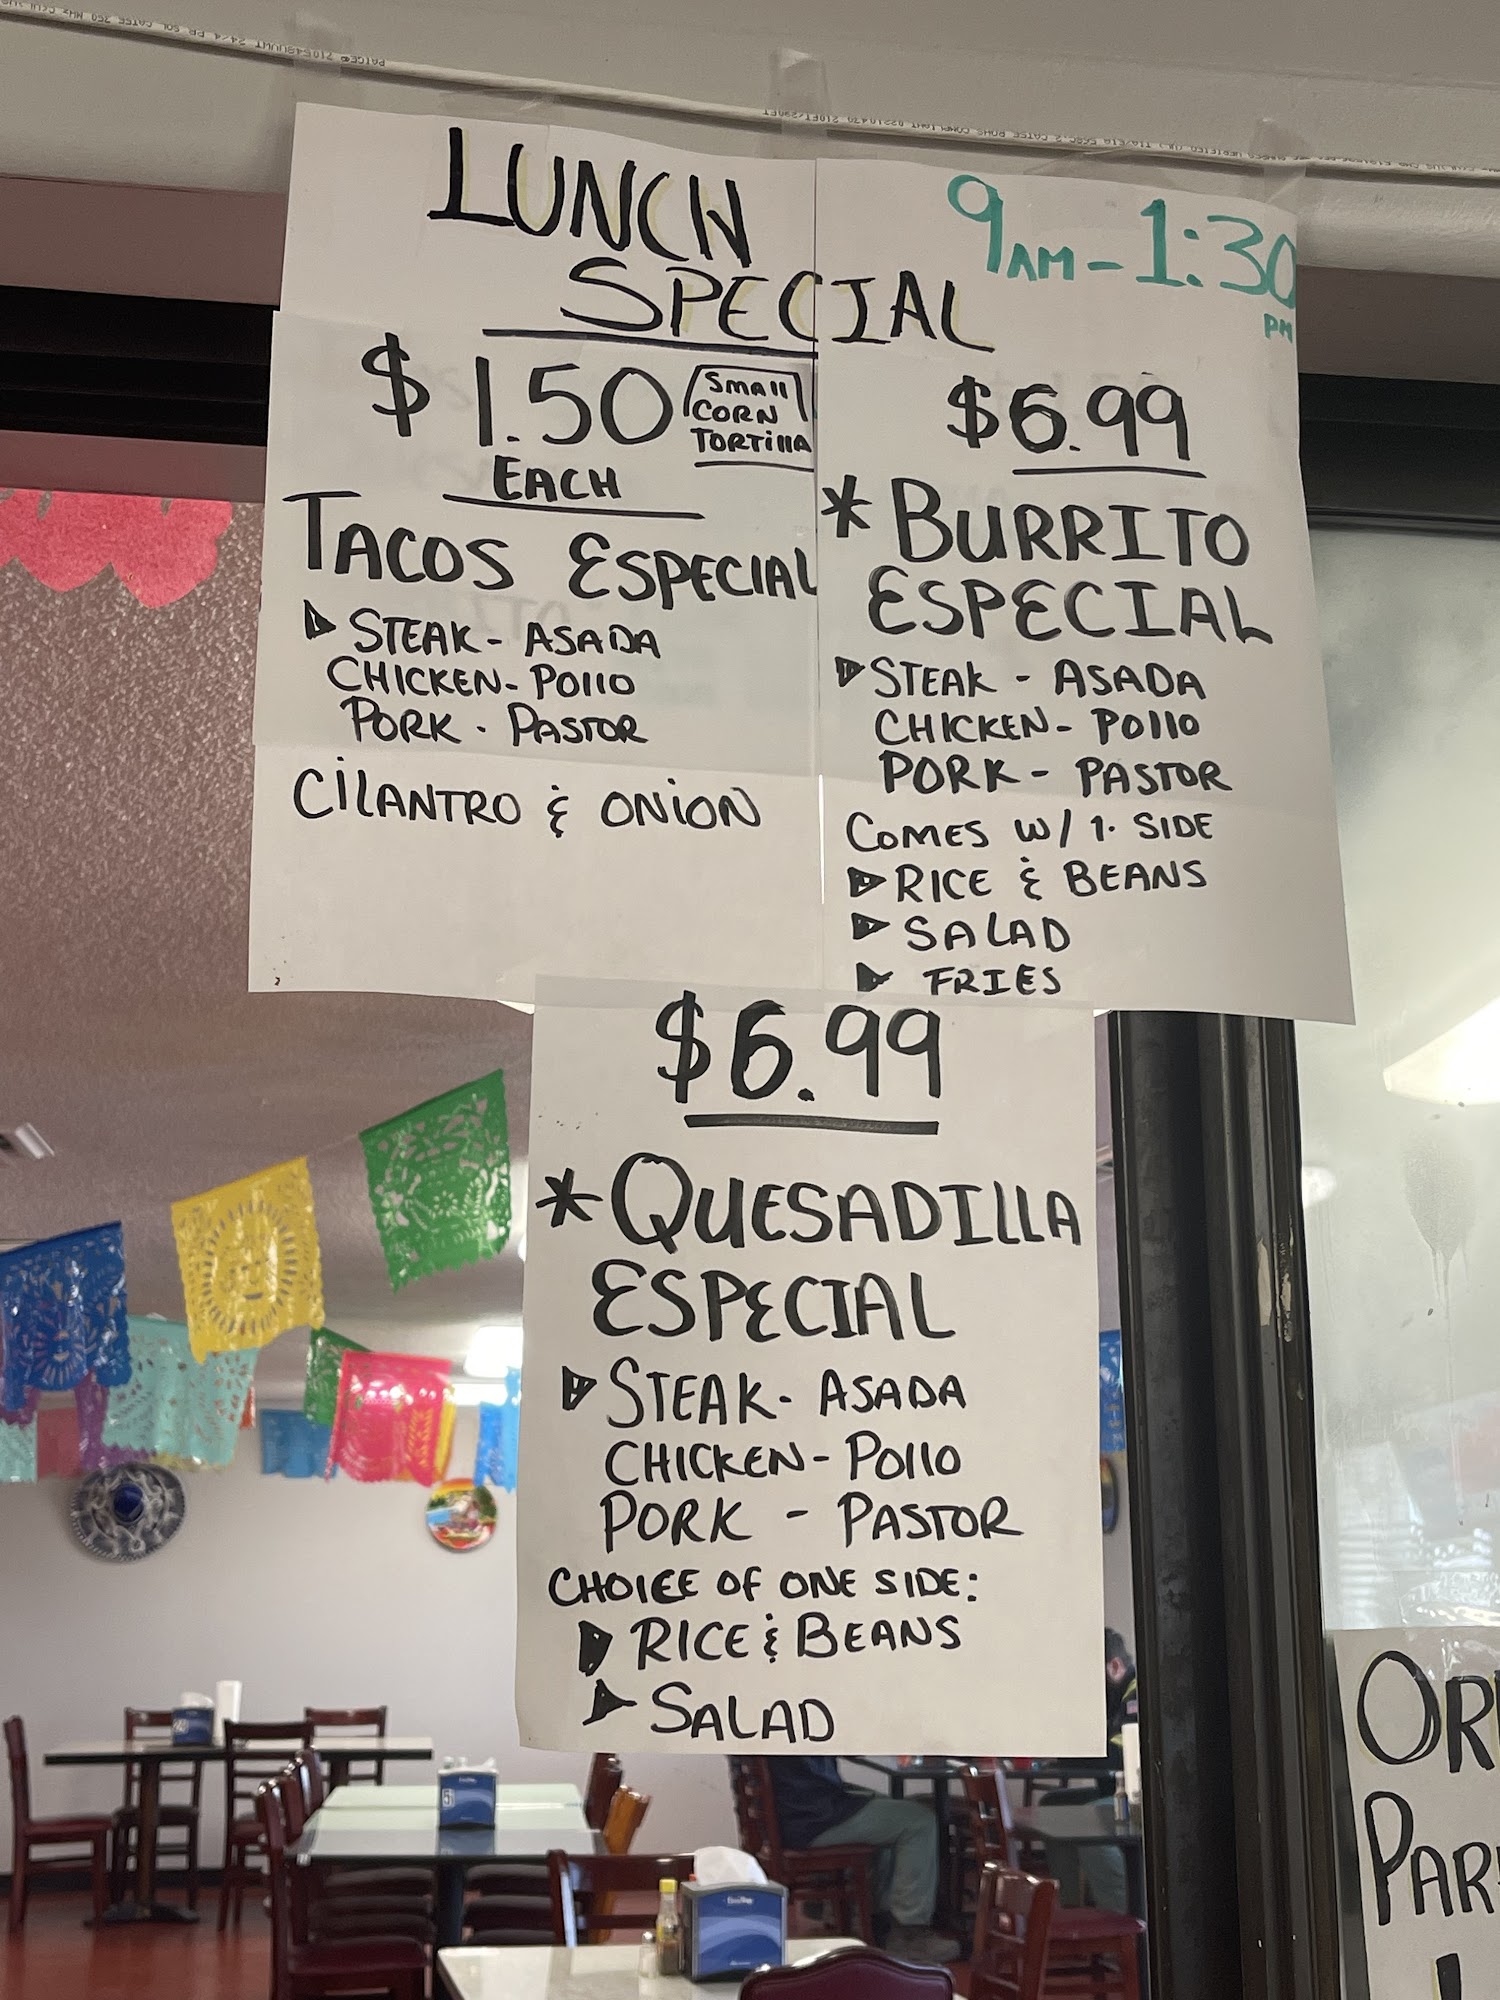 LUNCH
SPECIAL
9AM - 1:30
PM
$1.50
EACH
SMALL
CORN
TORTILLA
TACOS ESPECIAL
STEAK - ASADA
CHICKEN - POLLO
PORK - PASTOR
CILANTRO & ONION
$6.99
* BURRITO
ESPECIAL
STEAK - ASADA
CHICKEN - POLLO
PORK - PASTOR
COMES W/ 1. SIDE
RICE & BEANS
SALAD
FRIES
$6.99
* QUESADILLA
ESPECIAL
STEAK - ASADA
CHICKEN - POLLO
PORK - PASTOR
CHOICE OF ONE SIDE:
RICE & BEANS
SALAD
OR
PAR